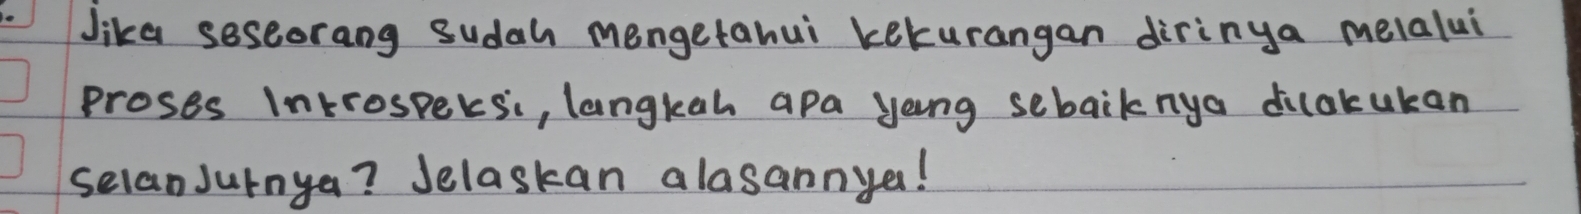 Jika seseorang sudah mengetahui kekurangan dirinya melalui
proses Introspeksi, langkah apa yang sebaiknya dilakukan
selanjutnya? Jelaskan alasannya!